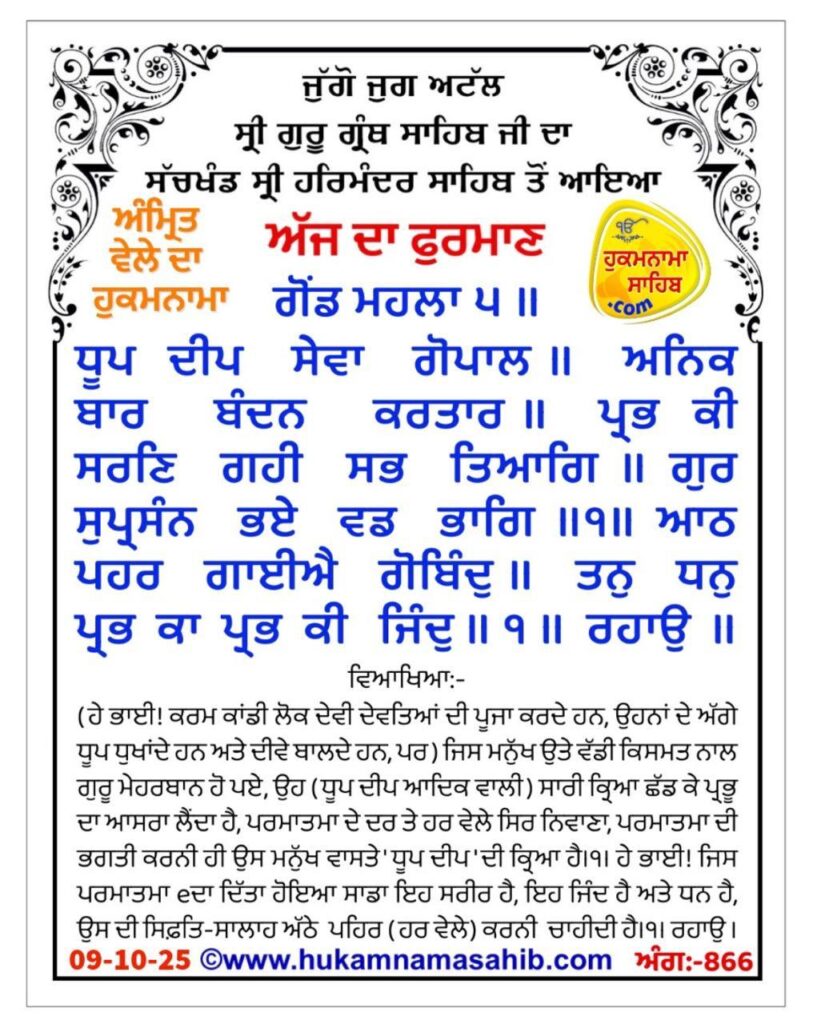 ਜੁੱਗੋ ਜੁਗ ਅਟੱਲ
ਸ੍ਰੀ ਗੁਰੂ ਗ੍ਰੰਥ ਸਾਹਿਬ ਜੀ ਦਾ
ਸੱਚਖੰਡ ਸ੍ਰੀ ਹਰਿਮੰਦਰ ਸਾਹਿਬ ਤੋਂ ਆਇਆ
ਅੰਮ੍ਰਿਤ
ਵੇਲੇ ਦਾ
ਹੁਕਮਨਾਮਾ
ਅੱਜ ਦਾ ਫੁਰਮਾਣ
ੴ
ਹੁਕਮਨਾਮਾ
ਸਾਹਿਬ
.com
ਗੋਂਡ ਮਹਲਾ ੫ ॥
ਧੂਪ ਦੀਪ ਸੇਵਾ ਗੋਪਾਲ ॥ ਅਨਿਕ
ਬਾਰ ਬੰਦਨ ਕਰਤਾਰ ॥ ਪ੍ਰਭ ਕੀ
ਸਰਣਿ ਗਹੀ ਸਭ ਤਿਆਗਿ ॥ ਗੁਰ
ਸੁਪ੍ਰਸੰਨ ਭਏ ਵਡ ਭਾਗਿ ॥੧॥ ਆਠ
ਪਹਰ ਗਾਈਐ ਗੋਬਿੰਦੁ ॥ ਤਨੁ ਧਨੁ
ਪ੍ਰਭ ਕਾ ਪ੍ਰਭ ਕੀ ਜਿੰਦੁ ॥ ੧ ॥ ਰਹਾਉ ॥
ਵਿਆਖਿਆ:-
(ਹੇ ਭਾਈ! ਕਰਮ ਕਾਂਡੀ ਲੋਕ ਦੇਵੀ ਦੇਵਤਿਆਂ ਦੀ ਪੂਜਾ ਕਰਦੇ ਹਨ, ਉਹਨਾਂ ਦੇ ਅੱਗੇ
ਧੂਪ ਧੁਖਾਂਦੇ ਹਨ ਅਤੇ ਦੀਵੇ ਬਾਲਦੇ ਹਨ, ਪਰ) ਜਿਸ ਮਨੁੱਖ ਉਤੇ ਵੱਡੀ ਕਿਸਮਤ ਨਾਲ
ਗੁਰੂ ਮੇਹਰਬਾਨ ਹੋ ਪਏ, ਉਹ (ਧੂਪ ਦੀਪ ਆਦਿਕ ਵਾਲੀ) ਸਾਰੀ ਕ੍ਰਿਆ ਛੱਡ ਕੇ ਪ੍ਰਭੂ
ਦਾ ਆਸਰਾ ਲੈਂਦਾ ਹੈ, ਪਰਮਾਤਮਾ ਦੇ ਦਰ ਤੇ ਹਰ ਵੇਲੇ ਸਿਰ ਨਿਵਾਣਾ, ਪਰਮਾਤਮਾ ਦੀ
ਭਗਤੀ ਕਰਨੀ ਹੀ ਉਸ ਮਨੁੱਖ ਵਾਸਤੇ 'ਧੂਪ ਦੀਪ' ਦੀ ਕ੍ਰਿਆ ਹੈ।੧। ਹੇ ਭਾਈ! ਜਿਸ
ਪਰਮਾਤਮਾ eਦਾ ਦਿੱਤਾ ਹੋਇਆ ਸਾਡਾ ਇਹ ਸਰੀਰ ਹੈ, ਇਹ ਜਿੰਦ ਹੈ ਅਤੇ ਧਨ ਹੈ,
ਉਸ ਦੀ ਸਿਫ਼ਤਿ-ਸਾਲਾਹ ਅੱਠੇ ਪਹਿਰ (ਹਰ ਵੇਲੇ) ਕਰਨੀ ਚਾਹੀਦੀ ਹੈ।੧। ਰਹਾਉ।
09-10-25 ©www.hukamnamasahib.com ਅੰਗ:-866